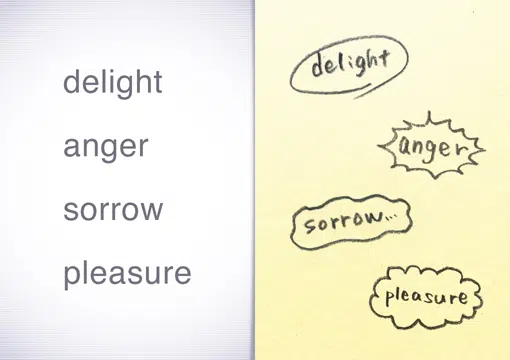 delight
anger
sorrow
pleasure
delight
anger
sorrow...
pleasure